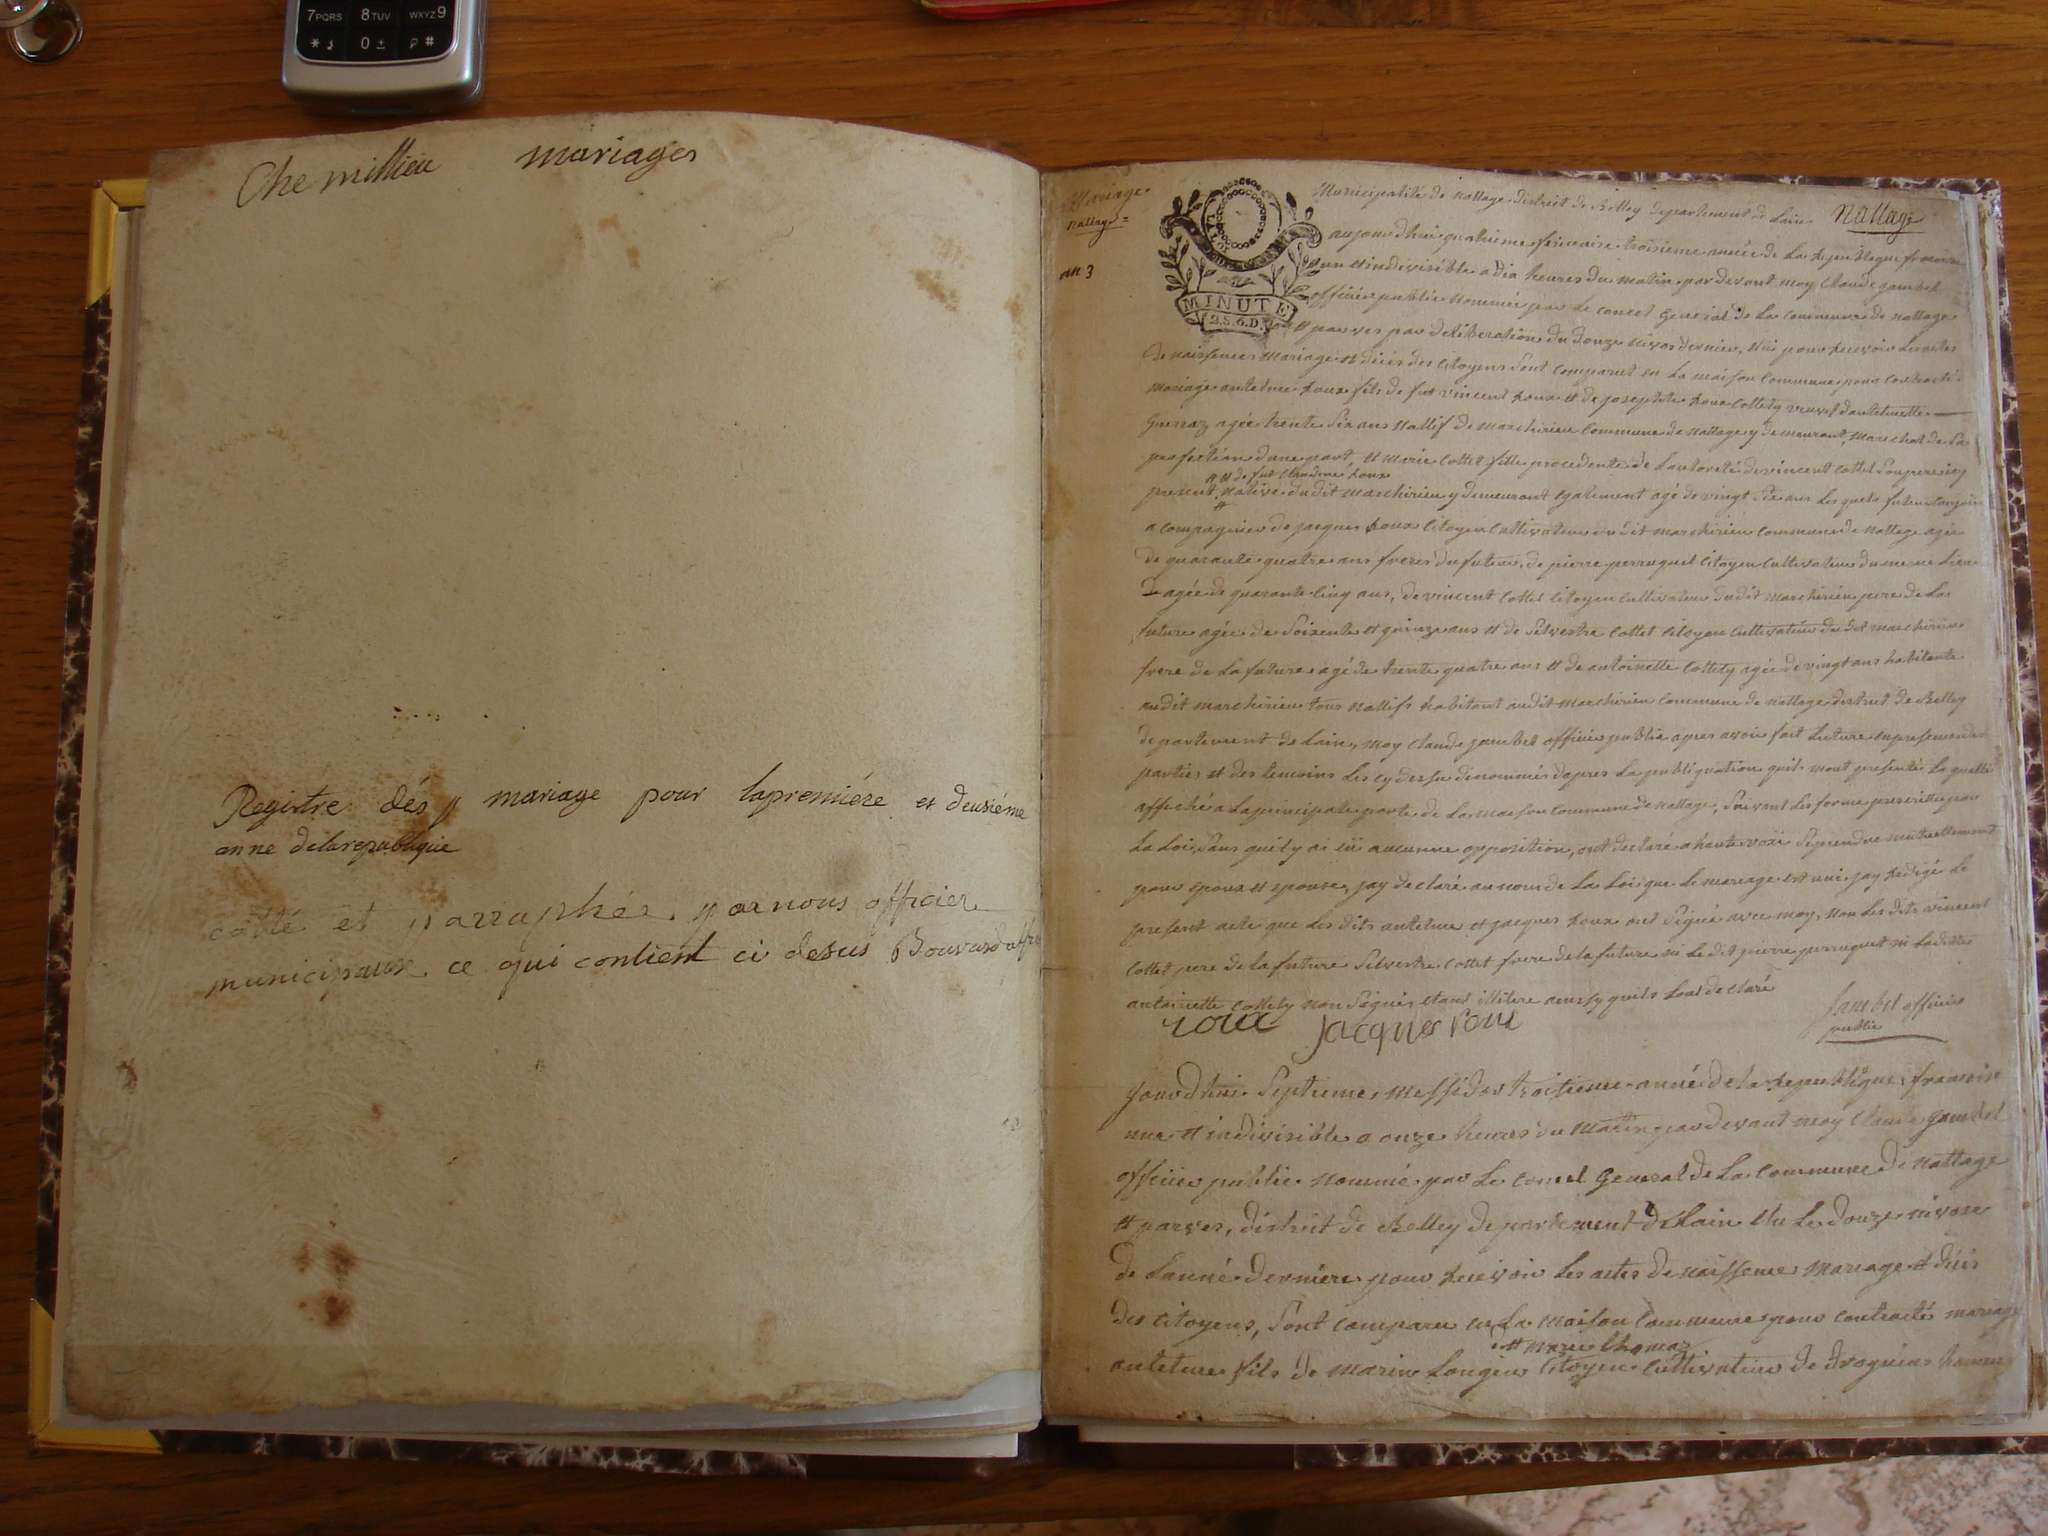 7PQRS 8TUV WXYZ9
* 0 ± #
Chemillieu mariages
Registre dés mariage pour lapremiére et deusiéme
anne délarepublique
côtté et parraphér par nous officier
municipaux ce qui contient ci desus Bouvard
Mariage
Nattage
an 3
MINUTE
2.S.6.D.
Municipalité de nattage district de Belley departement de Lain Nattage
aujourdhui quatrieme frimaire troisieme année de La Republique francoise
une et indivisible a dix heures du matin pardevant moy Claude jambet
officier public nommée par Le consel General de La Commune de nattage
et parves par deliberation du douze nivos dernier, Elui pour Recevoir Les actes
de naissences mariage et décés des Citoyens sont comparut en La maison Commune pour contracté
mariage antelme Roux fils de fut vincent Roux et de josephte Roux Cottety veuf dantelmette
Guerraz agée trente six ans nattif de marchirieu Commune de nattage y demeurant, marechal de sa
profection dune part, et marie Cottet fille procedente de Lautorité de vincent Cottet son pere icy
et de fut Claudine Roux
present native dudit marchirieu y demeurant egalement agé de vingt six ans Lesquels futur conjoin
accompagnier de jacques Roux Citoyen Cultivateur du dit marchirieu commune de nattage agée
de quarante quatre ans freres du futeur, de pierre perruquet Citoyen Cultivateur du meme Lieu
agée de quarante cinq ans, de vincent Cottet Citoyen Cultivateur dudit marchirieu pere de La
future agée de soixente et quinze ans et de Silvestre Cottet Citoyen Cultivateur dudit marchirieu
frere de La future agé de trente quatre ans et de antoinette Cottety agée de vingt ans habitante
audit marchirieu tous nattifs habitant audit marchirieu Commune de nattage district de Belley
departement de Lain, moy Claude jambet officier public apres avoir fait Lecture en presense des
parties et des temoins Les cy dessu dénommés dapres La publiquation quils mont presentés La quelle
affiché a La principale porte de La maison Commune de nattage, suivant Les forme prescritte par
La Loi, sans quil y ai eü aucunne opposition, ont declaré a haute voix se prendre mutuellement
pour epoux et epouse, jay declaré au nom de La Loi que Le mariage est uni jay Redigé Le
present acte que Les dits antelme et jacques Roux ont signé avec moy, non Les dits vincent
Cottet pere de la future Silvestre Cottet frere de la future ni Le dit pierre perruquet ni Laditte
antoinette Cottety non signés etant illitere ainsy quils Lont declaré
roux jacques roux jambet officier
public
jourdhui Septieme messidor troisieme année de la Republique francoise
une et indivisible a onze heures du matin pardevant moy Claude jambet
officier public nommé par Le Consel General de La Commune de nattage
et parves, district de Belley departement de Lain Elu Le douze nivose
de Lanné derniere pour Recevoir Les actes de naissence mariage et décés
des Citoyens, sont comparu en La maison Commune pour contracté mariage
et marie thomaz
antelme fils de marin Longin Citoyen Cultivateur de